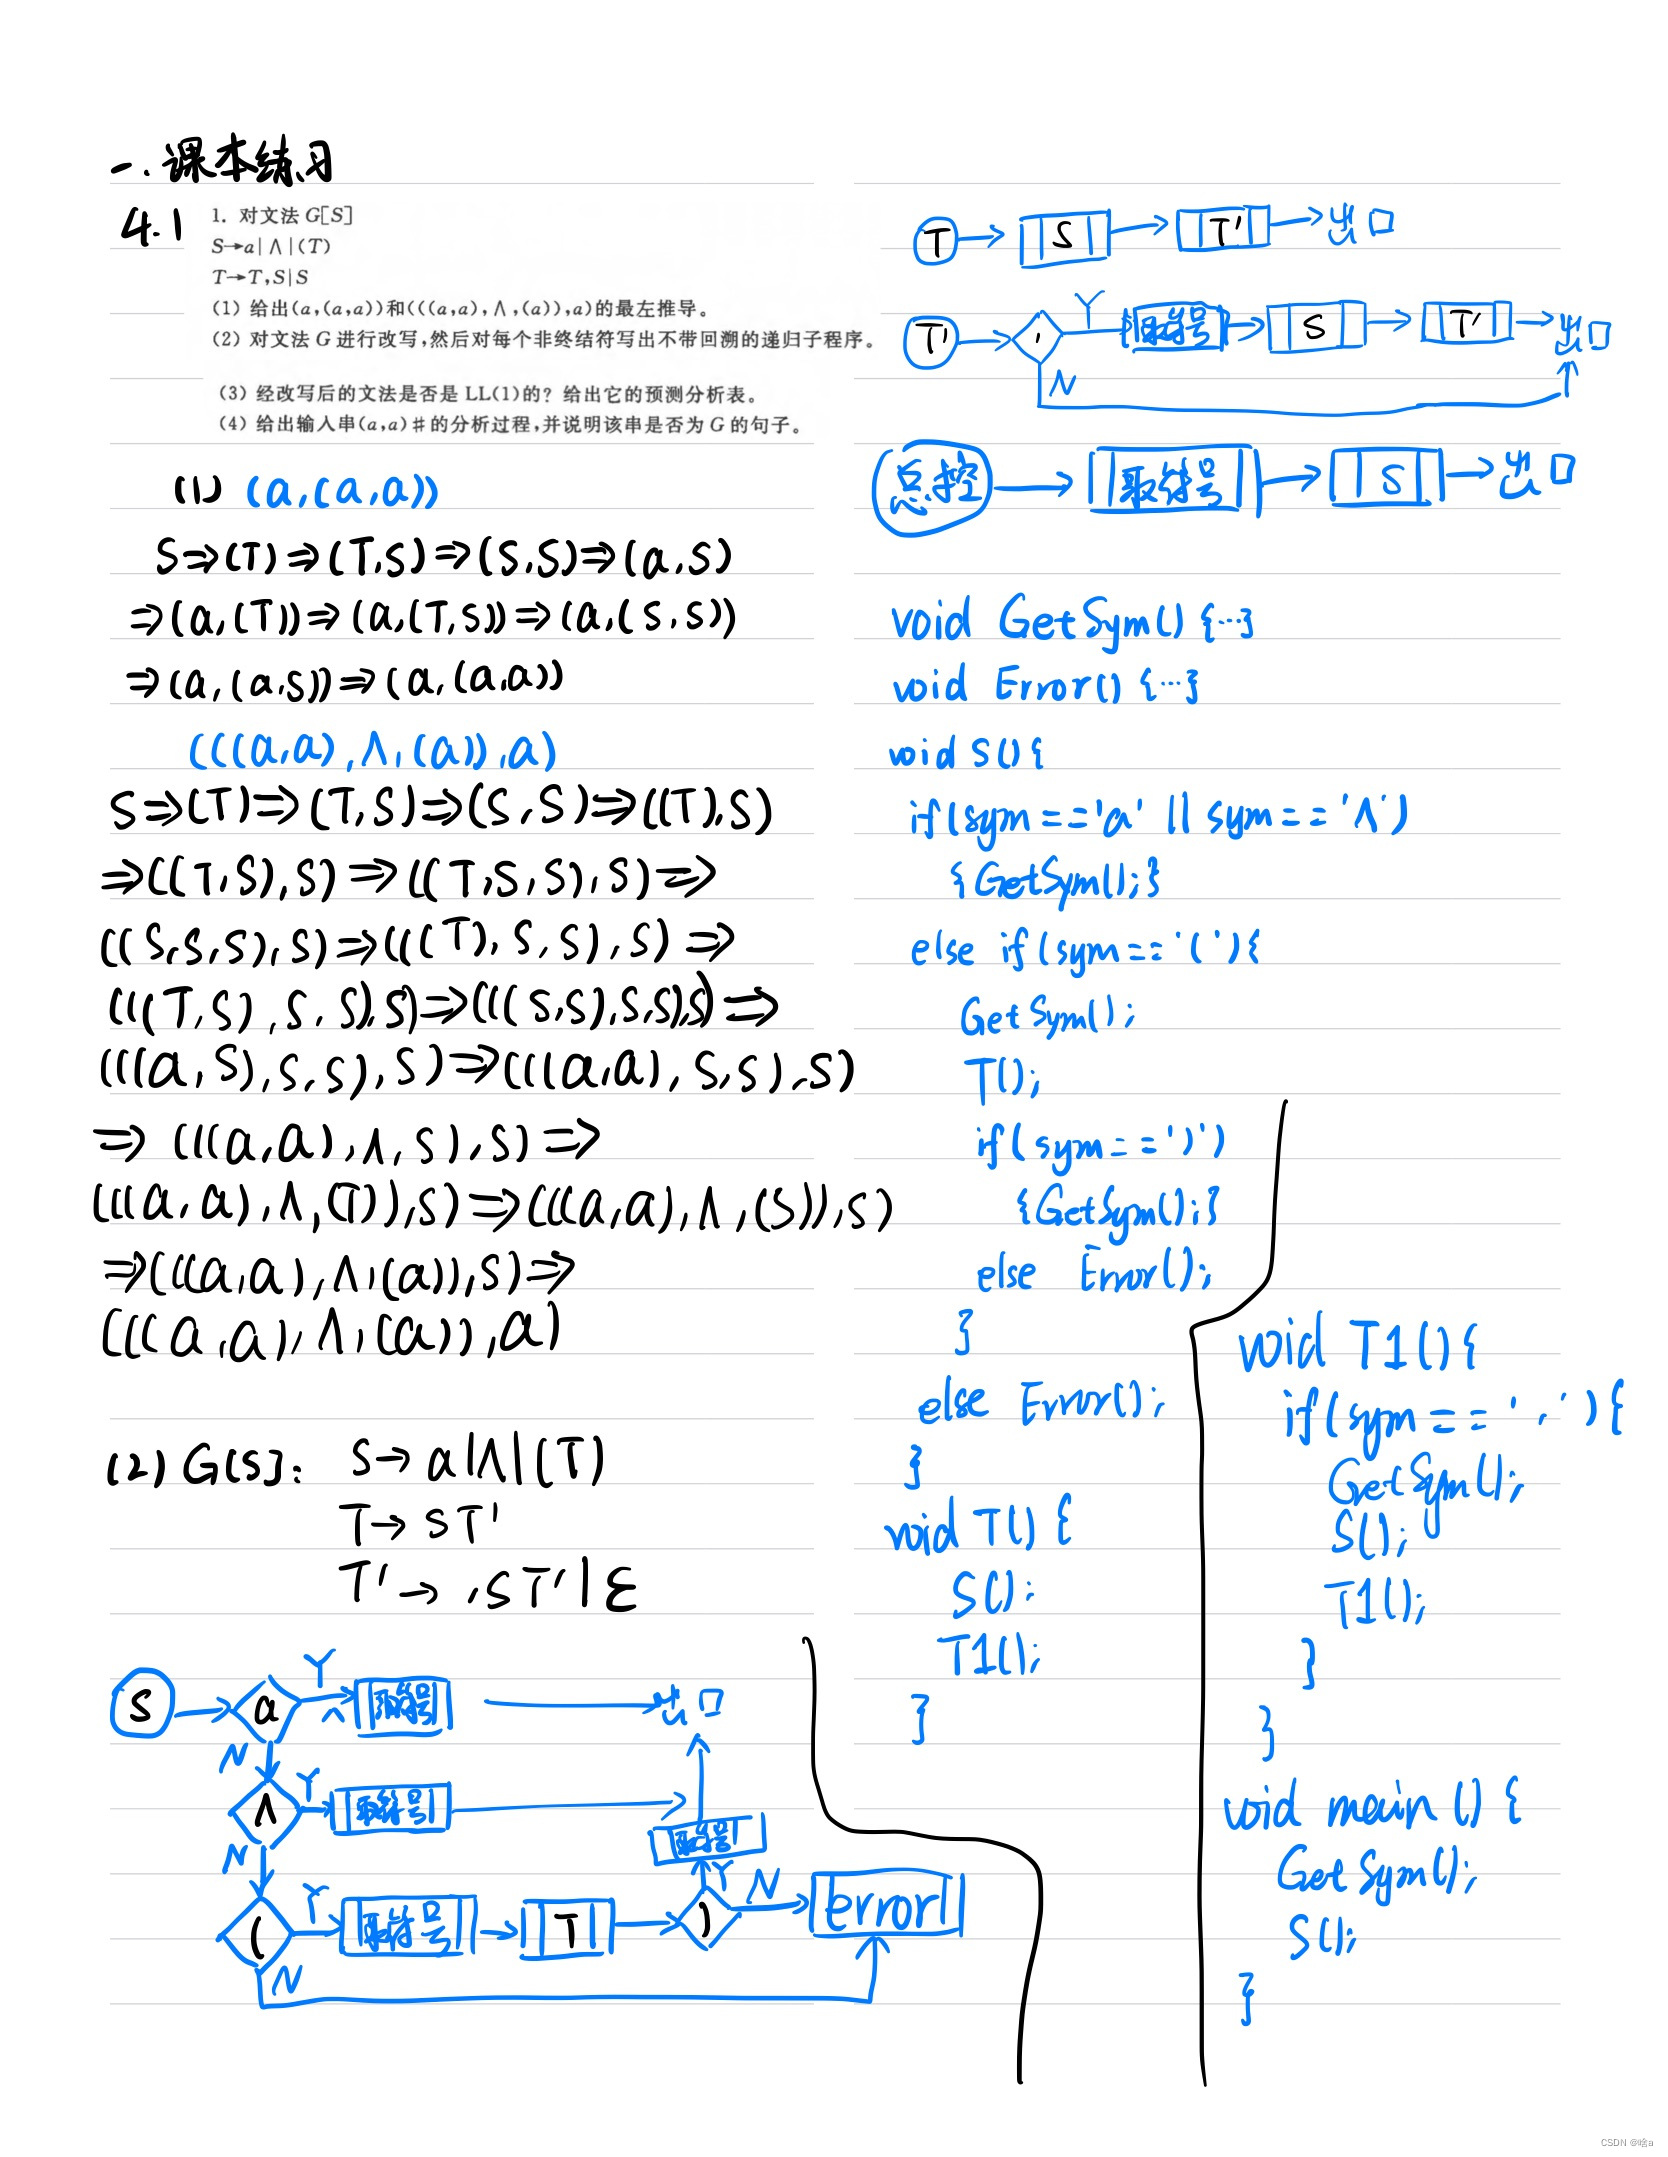 一.课本练习
4.1
1. 对文法 G[S]
S→a|∧|(T)
T→T,S|S
(1) 给出(a,(a,a))和(((a,a),∧,(a)),a)的最左推导。
(2) 对文法 G 进行改写,然后对每个非终结符写出不带回溯的递归子程序。
(3) 经改写后的文法是否是 LL(1)的? 给出它的预测分析表。
(4) 给出输入串(a,a)#的分析过程,并说明该串是否为 G 的句子。
(1) (a,(a,a))
S⇒(T)⇒(T,S)⇒(S,S)⇒(a,S)
⇒(a,(T))⇒(a,(T,S))⇒(a,(S,S))
⇒(a,(a,S))⇒(a,(a,a))
(((a,a),∧,(a)),a)
S⇒(T)⇒(T,S)⇒(S,S)⇒((T),S)
⇒((T,S),S)⇒((T,S,S),S)⇒
((S,S,S),S)⇒(((T),S,S),S)⇒
(((T,S),S,S),S)⇒(((S,S),S,S),S)⇒
(((a,S),S,S),S)⇒(((a,a),S,S),S)
⇒(((a,a),∧,S),S)⇒
(((a,a),∧,(T)),S)⇒(((a,a),∧,(S)),S)
⇒(((a,a),∧,(a)),S)⇒
(((a,a),∧,(a)),a)
(2) G[S]: S→a|∧|(T)
T→ST'
T'→,ST'|ε
S a Y 取符号 出口
N
∧ Y 取符号
取符号
N
( Y 取符号 T ) Y N error
N
T S T' 出口
T' , Y 取符号 S T' 出口
N
总控 取符号 S 出口
void GetSym() {…}
void Error() {…}
void S(){
if(sym=='a' || sym=='∧')
{GetSym();}
else if(sym=='('){
GetSym();
T();
if(sym==')')
{GetSym();}
else Error();
}
else Error();
}
void T() {
S();
T1();
}
void T1(){
if(sym==','){
GetSym();
S();
T1();
}
}
void main(){
GetSym();
S();
}
CSDN @啥a